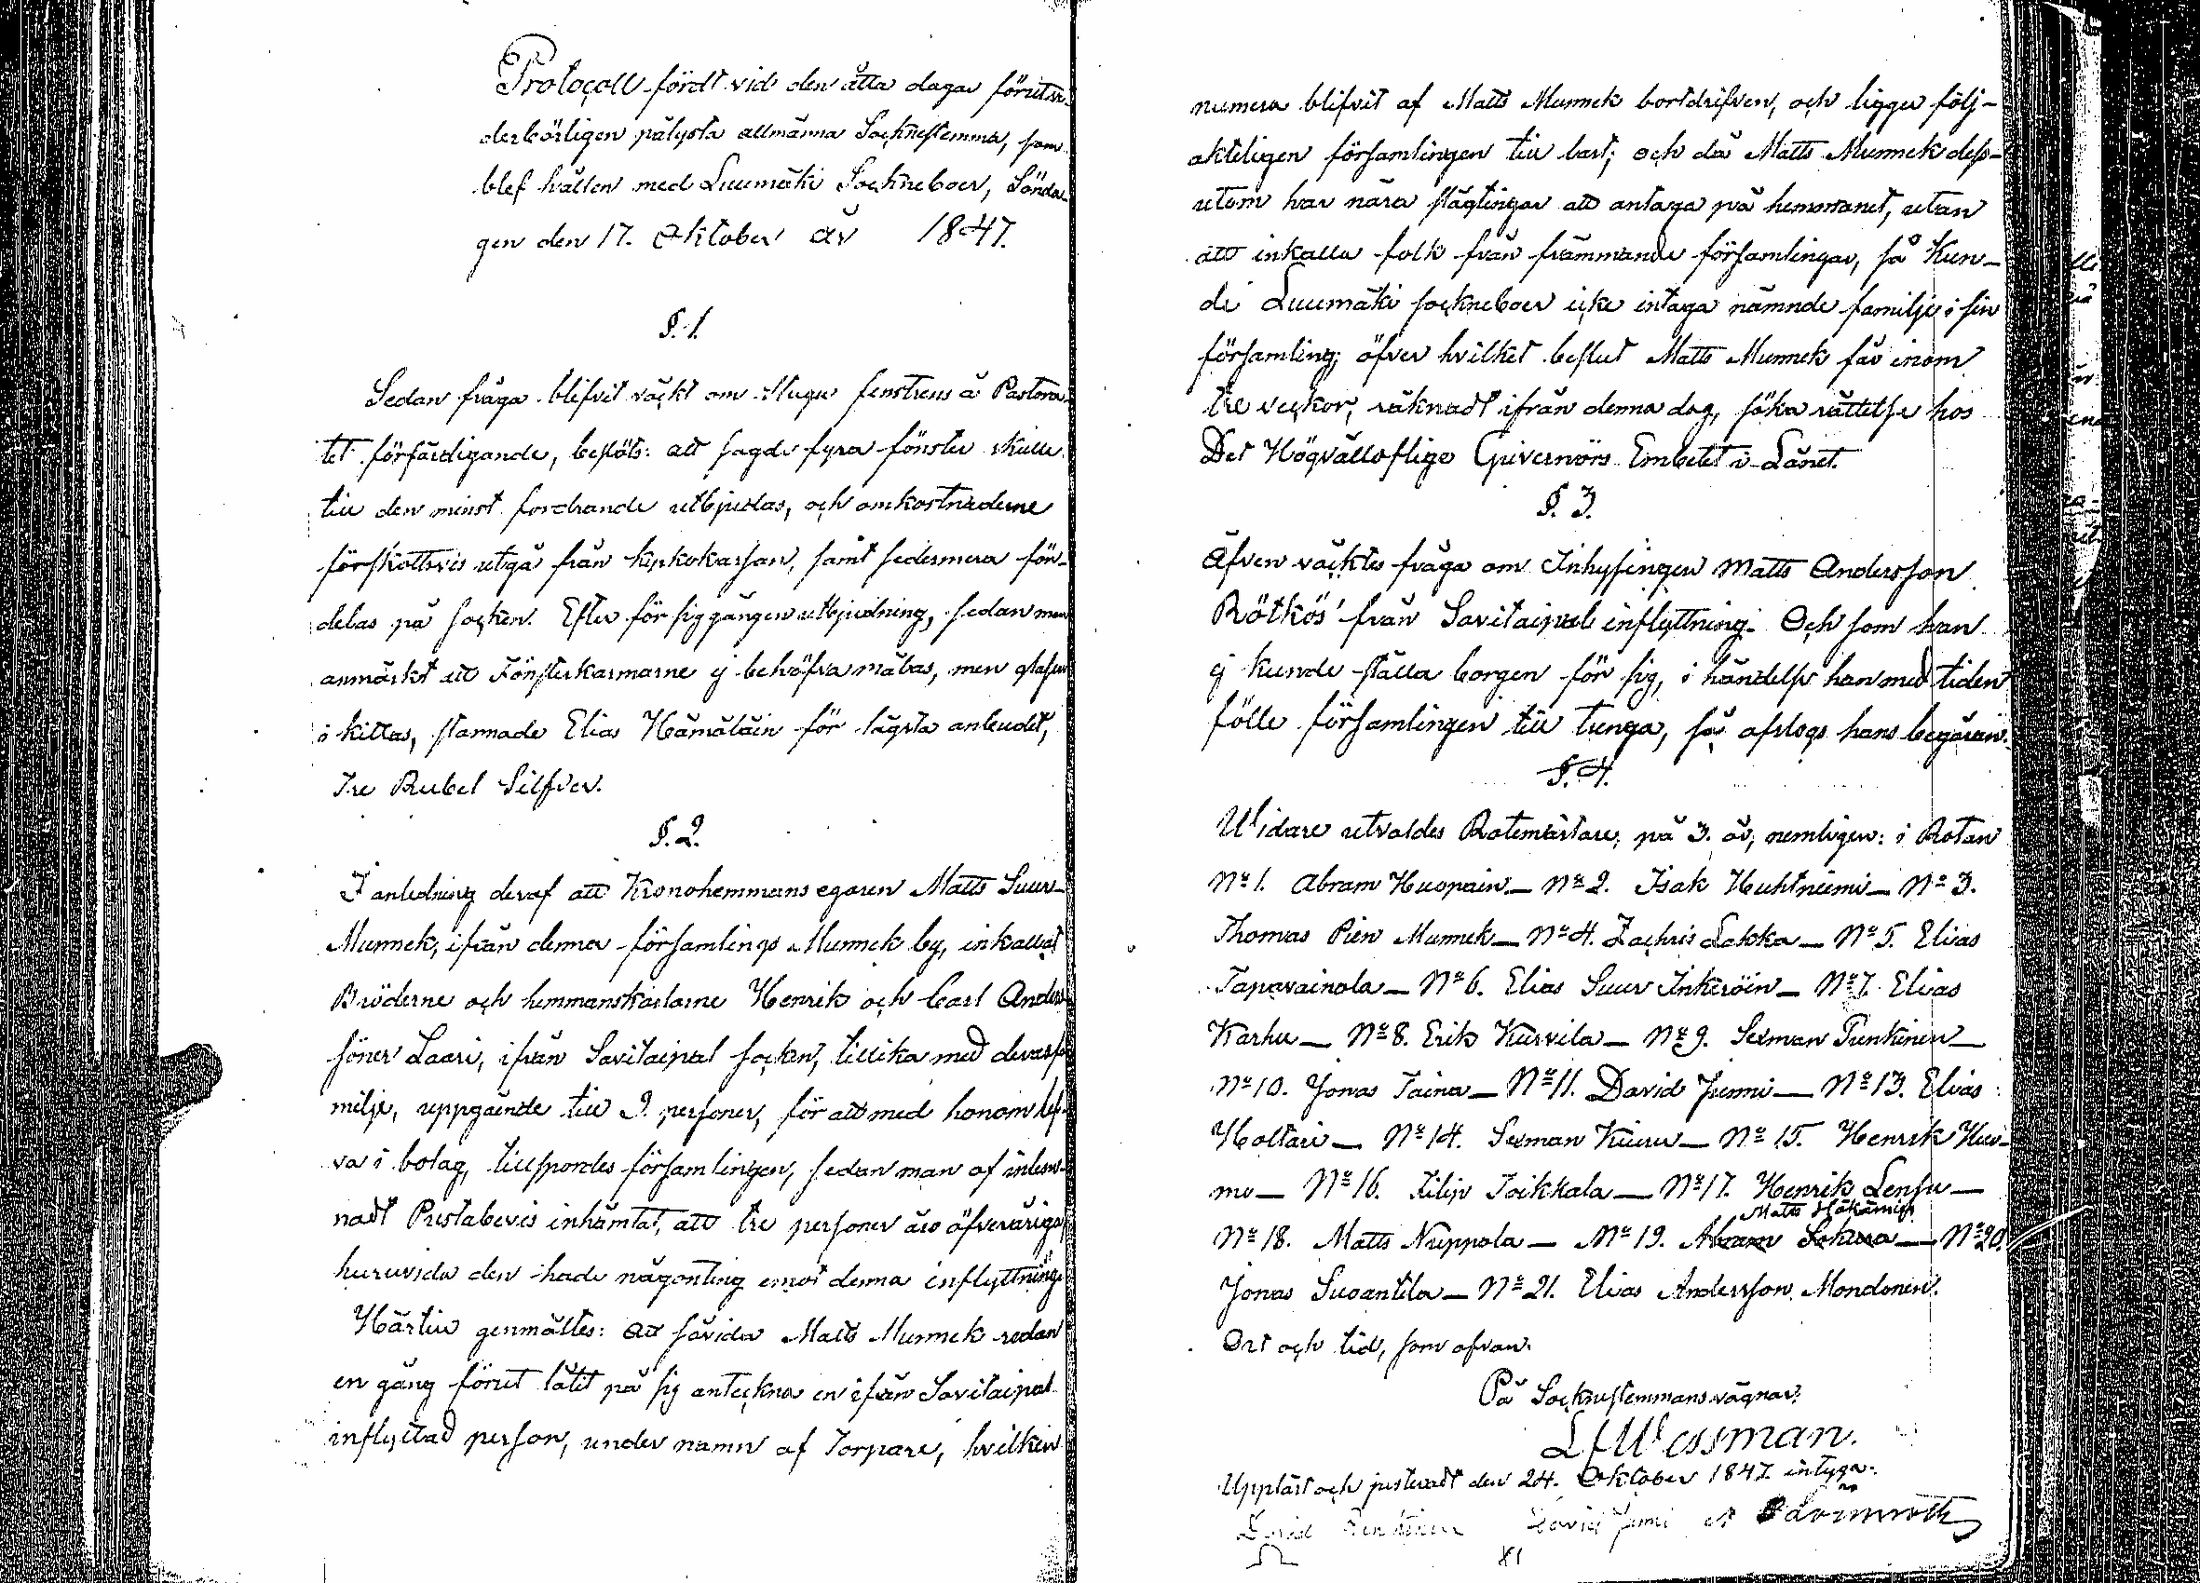 Protocoll fördt vid den åtta dagar förut ve-
derbörligen pålysta allmänna Sockneftemma, som
blef hållen med Luumäki Sockneboer, Sönda-
gen den 17. Oktober år 1847.
§. 1.
Sedan fråga blifvit väckt om fenstrens å Pastora-
tet förfärdigande, beslöts: att sagde fyra fönster skulle
till den minst fordrande utbjudas, och omkostnaderne
förskottsvis utgå från kyrkokassan, samt sedermera för-
delas på socken. Efter för sig gången utbjudning, sedan man
anmärkt att Fönsterkarmarne ej behöfva målas, men glasen
i kittas, stannade Elias Hämäläin för lägsta anbudet,
Tre Rubel Silfver.
§. 2.
I anledning deraf att Kronohemmans egaren Matts Suur-
Munnek, ifrån denna församlings Munnek by, inkallat
Bröderne och hemmanskarlarne Henrik och Carl Anders-
söner Laari, ifrån Savitaipal socken, tillika med deras fa-
milje, uppgående till 9. personer, för att med honom lef-
va i bolag, tillspordes församlingen, sedan man af inlem-
nadt Prestabevis inhämtat, att tre personer äro öfveråriga,
huruvida den hade någonting emot denna inflyttning.
Härtill genmältes: att såvida Matts Munnek redan
en gång förut låtit på sig anteckna en ifrån Savitaipal
inflyttad person, under namn af Torpare, hvilken
numera blifvit af Matts Munnek bortdrifven, och ligger följ-
akteligen församlingen till last; och då Matts Munnek dess-
utom har nära slägtingar att antaga på hemmanet, utan
att inkalla folk från främmande församlingar, så kun-
de Luumäki sockneboer icke intaga nämnde familje i sin
församling; öfver hvilket beslut Matts Munnek får inom
tre veckor, räknadt ifrån denna dag, söka rättelse hos
Det Högvällofliga Guvernörs Embetet i Länet.
§. 3.
Äfven väcktes fråga om Inhysingen Matts Andersson
Rötkös' från Savitaipal inflyttning. Och som han
ej kunde ställa borgen för sig, i händelse han med tiden
fölle församlingen till tunga, så afslogs hans begäran.
§. 4.
Widare utvaldes Rotemästare, på 3. år, nemligen: i Rotan
Nº 1. Abram Huopain — Nº 2. Isak Huhtniemi — Nº 3.
Thomas Pien Munnek — Nº 4. Zachris Lakka — Nº 5. Elias
Tapavainola — Nº 6. Elias Suur Inkeröin — Nº 7. Elias
Karhu — Nº 8. Erik Kurvila — Nº 9. Sexman Punkinen —
Nº 10. Jonas Taina — Nº 11. David Junni — Nº 13. Elias
Holtari — Nº 14. Sexman Kiuru — Nº 15. Henrik Hur-
me — Nº 16. Filip Toikkala — Nº 17. Henrik Lensu —
Matts Häkämies
Nº 18. Matts Nuppola — Nº 19. Abram — Nº 20.
Jonas Suoantila — Nº 21. Elias Andersson Mondonen.
Ort och tid, som ofvan.
På Socknestemmans vägnar:
Wessman.
Uppläst och justeradt den 24. Oktober 1847. intyga:
David Junni